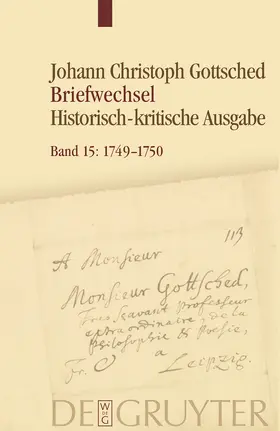 Johann Christoph Gottsched
Briefwechsel
Historisch-kritische Ausgabe
Band 15: 1749–1750
113
A Monsieur
Monsieur Gottsched,
Tres scavant professeur
extraordinaire, de la
philosophie & Poesie,
Fr. a
Leipzig.
W
DE
G
DE GRUYTER